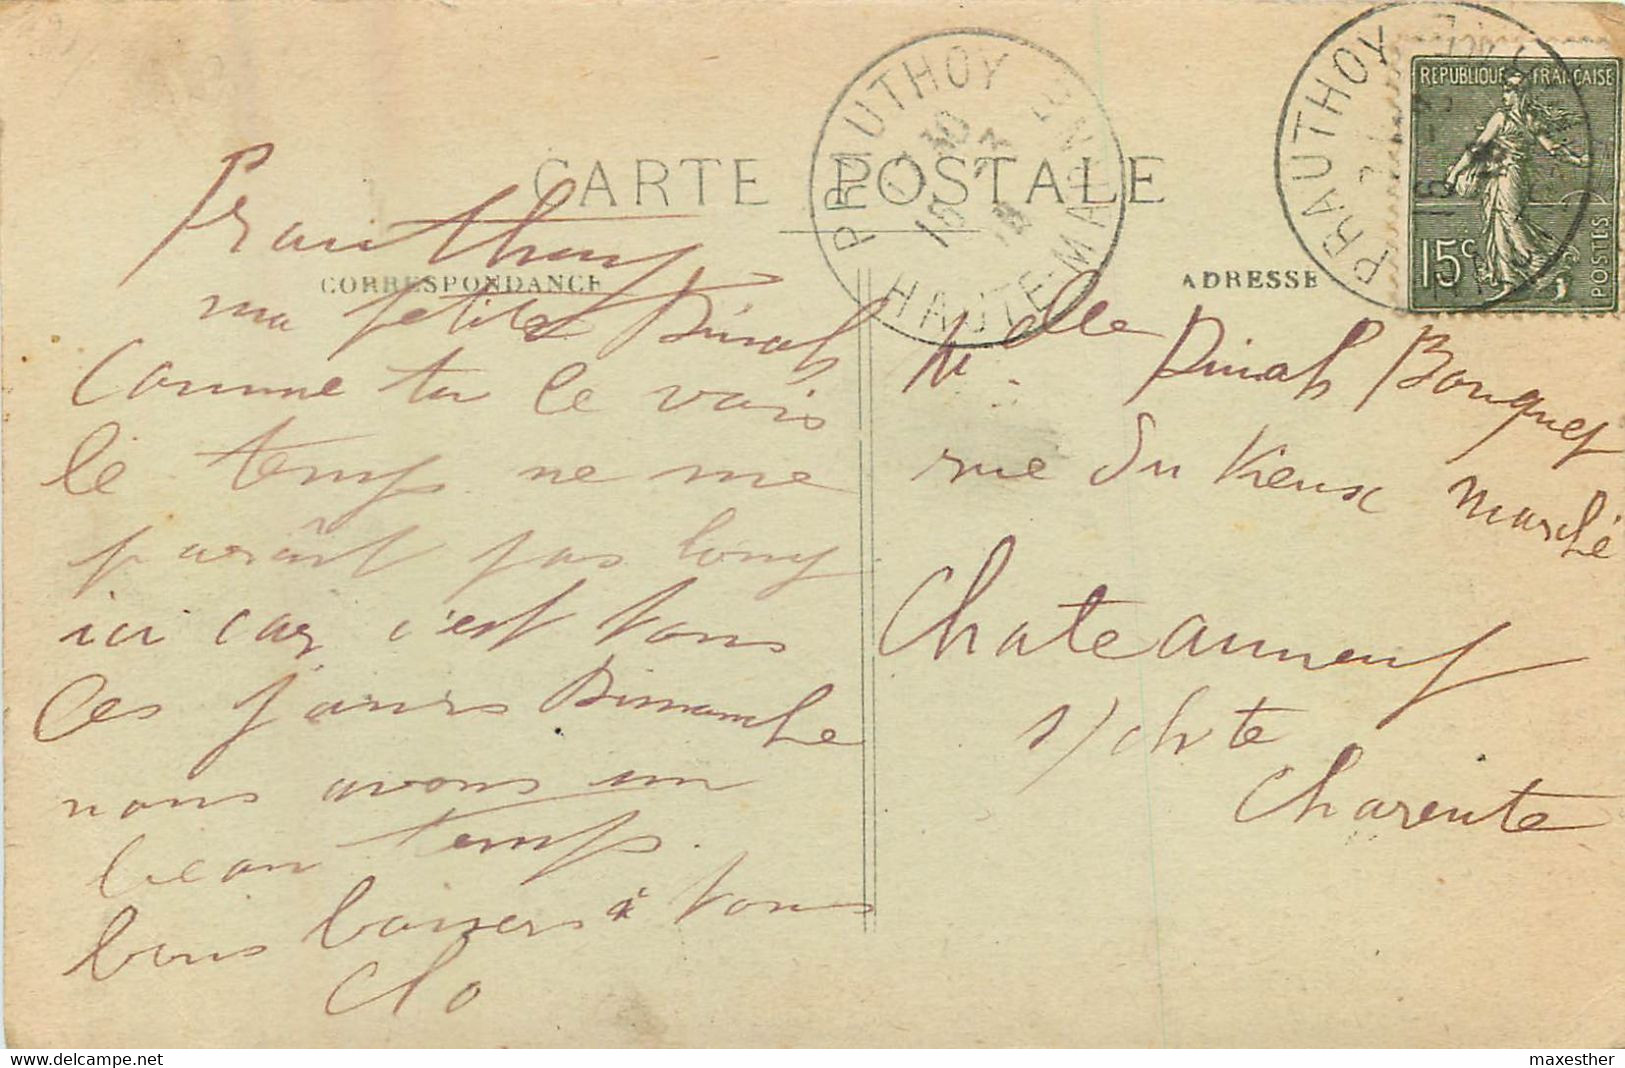 CARTE POSTALE
CORRESPONDANCE
Prauthoy
ma petite Dinah
Comme tu le vois
le temps ne me
paraît pas long
ici car c'est tous
Ces jours Dimanche
nous avons un
beau temps.
bons baisers à tous
Clo
ADRESSE
Mlle Dinah Bouquet
rue du Vieux Marché
Chateauneuf
s/ chte
Charente
PRAUTHOY
HAUTE-MARNE
PRAUTHOY
REPUBLIQUE FRANÇAISE
15c
POSTES
maxesther